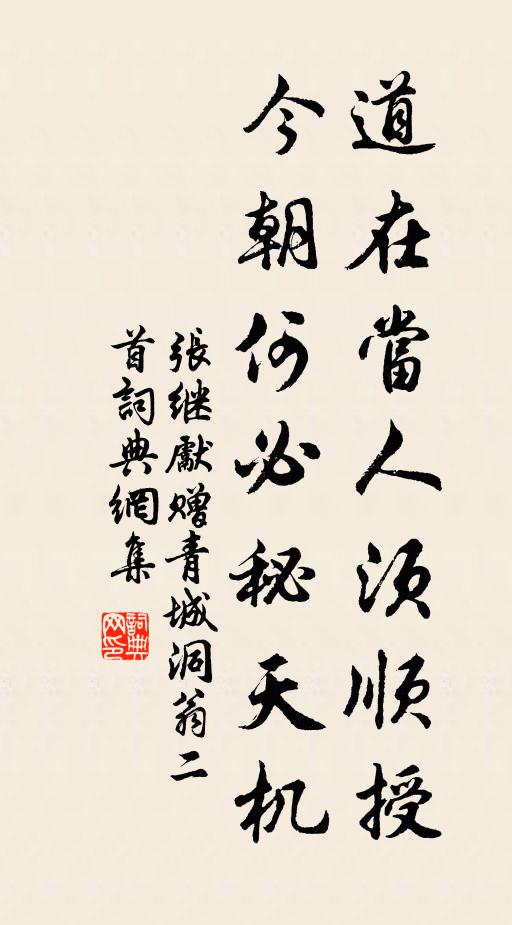 道在當人須順授
今朝何必秘天机
張继獻赠青城洞翁二
首詞典網集
詞典
网印